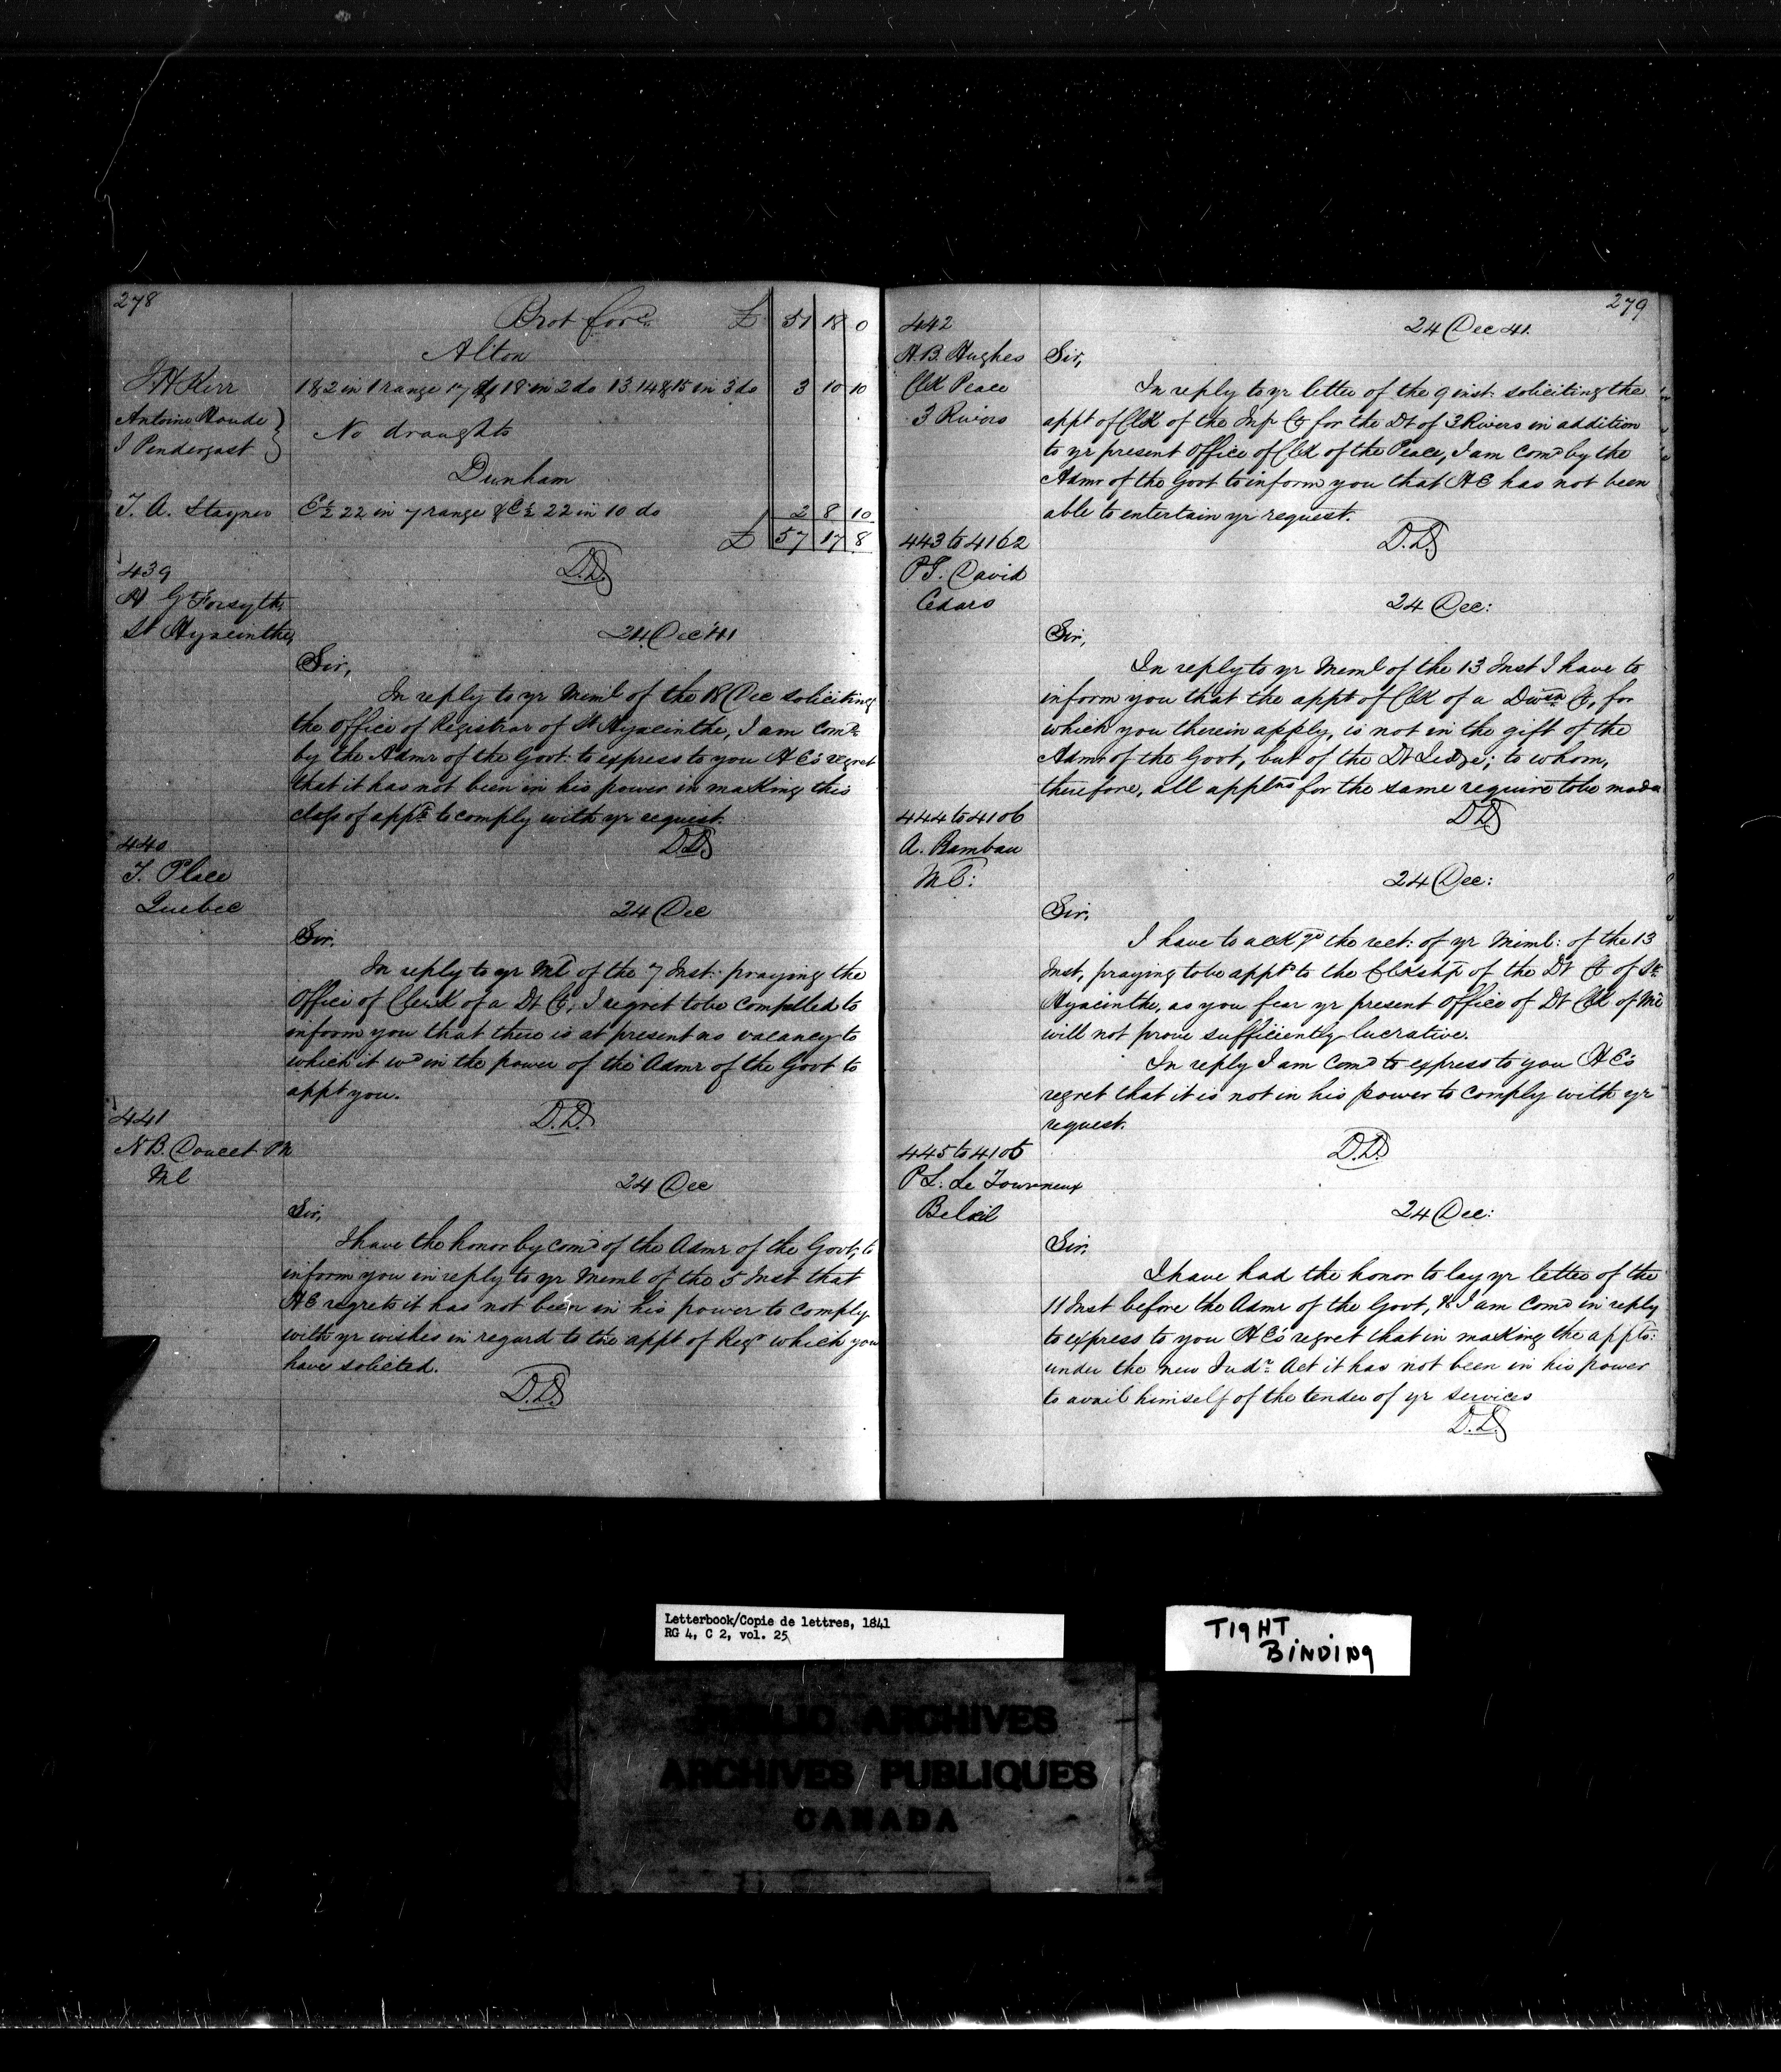 278
Brot for^d £ 51 18 0
Alton
J. H Kerr 1 & 2 in 1 range 17 & 18 in 2 do 13 14 & 15 in 3 do 3 10 10
Antoine Houde }
J Pendergast } No draughts
Dunham
T. A. Stayner E ½ 22 in 7 range & E ½ 22 in 10 do 2 8 10
£ 57 17 8
D.D.
439
G Forsyth
St Hyacinthe
24 Dec '41
Sir,
In reply to yr Meml of the 18 Dec soliciting
the office of Registrar of St Hyacinthe, I am com^d
by the Admr of the Govt. to express to you H E's regret
that it has not been in his power in making this
class of appts to comply with yr request.
D.D.
440
T. Place
Quebec
24 Dec
Sir.
In reply to yr Ml of the 7 Inst: praying the
Office of Clerk of a Dt Ct, I regret to be compelled to
inform you that there is at present no vacancy to
which it w^d in the power of the Admr of the Govt to
appt you.
D.D.
441
N B. Doucet
Ml
24 Dec
Sir,
I have the honor by com^d of the Admr of the Govt, to
inform you in reply to yr Meml of the 5 Inst that
H E regrets it has not been in his power to comply
with yr wishes in regard to the appt of Reg^r which you
have solicted.
D.D.
279
442
H. B. Hughes
Clk Peace
3 Rivers
24 Dec 41.
Sir,
In reply to yr letter of the 9 inst: soliciting the
appt of Clk of the Inf Ct for the Dt of 3 Rivers in addition
to yr present Office of Clk of the Peace, I am Com^d by the
Admr of the Govt to inform you that H E has not been
able to entertain yr request.
D.D.
443 to 4162
P J. David
Cedars
24 Dec:
Sir,
In reply to yr Meml of the 13 Inst I have to
inform you that the appt of Clk of a Divsn Ct, for
which you therein apply, is not in the gift of the
Admr of the Govt, but of the Dt Judge; to whom,
therefore, all applns for the same require to be made
D D
444 to 4106
A. Rambau
Ml:
24 Dec:
Sir,
I have to ackge the rect: of yr Meml: of the 13
Inst, praying to be appt^d to the Clkshp of the Dt Ct of St
Hyacinthe, as you fear yr present Office of Dt Clk of Ml
will not prove sufficiently lucrative.
In reply I am Com^d to express to you H E's
regret that it is not in his power to comply with yr
request.
D.D.
445 to 4106
P L. Le Tourneux
Belœil
24 Dec:
Sir.
I have had the honor to lay yr letter of the
11 Inst before the Admr of the Govt, & I am Com^d in reply
to express to you H E's regret that in making the appts:
under the new Jud^r Act it has not been in his power
to avail himself of the tender of yr services
D.D.
Letterbook/Copie de lettres, 1841
RG 4, C 2, vol. 25
TIGHT
BINDING
PUBLIC ARCHIVES
ARCHIVES PUBLIQUES
CANADA